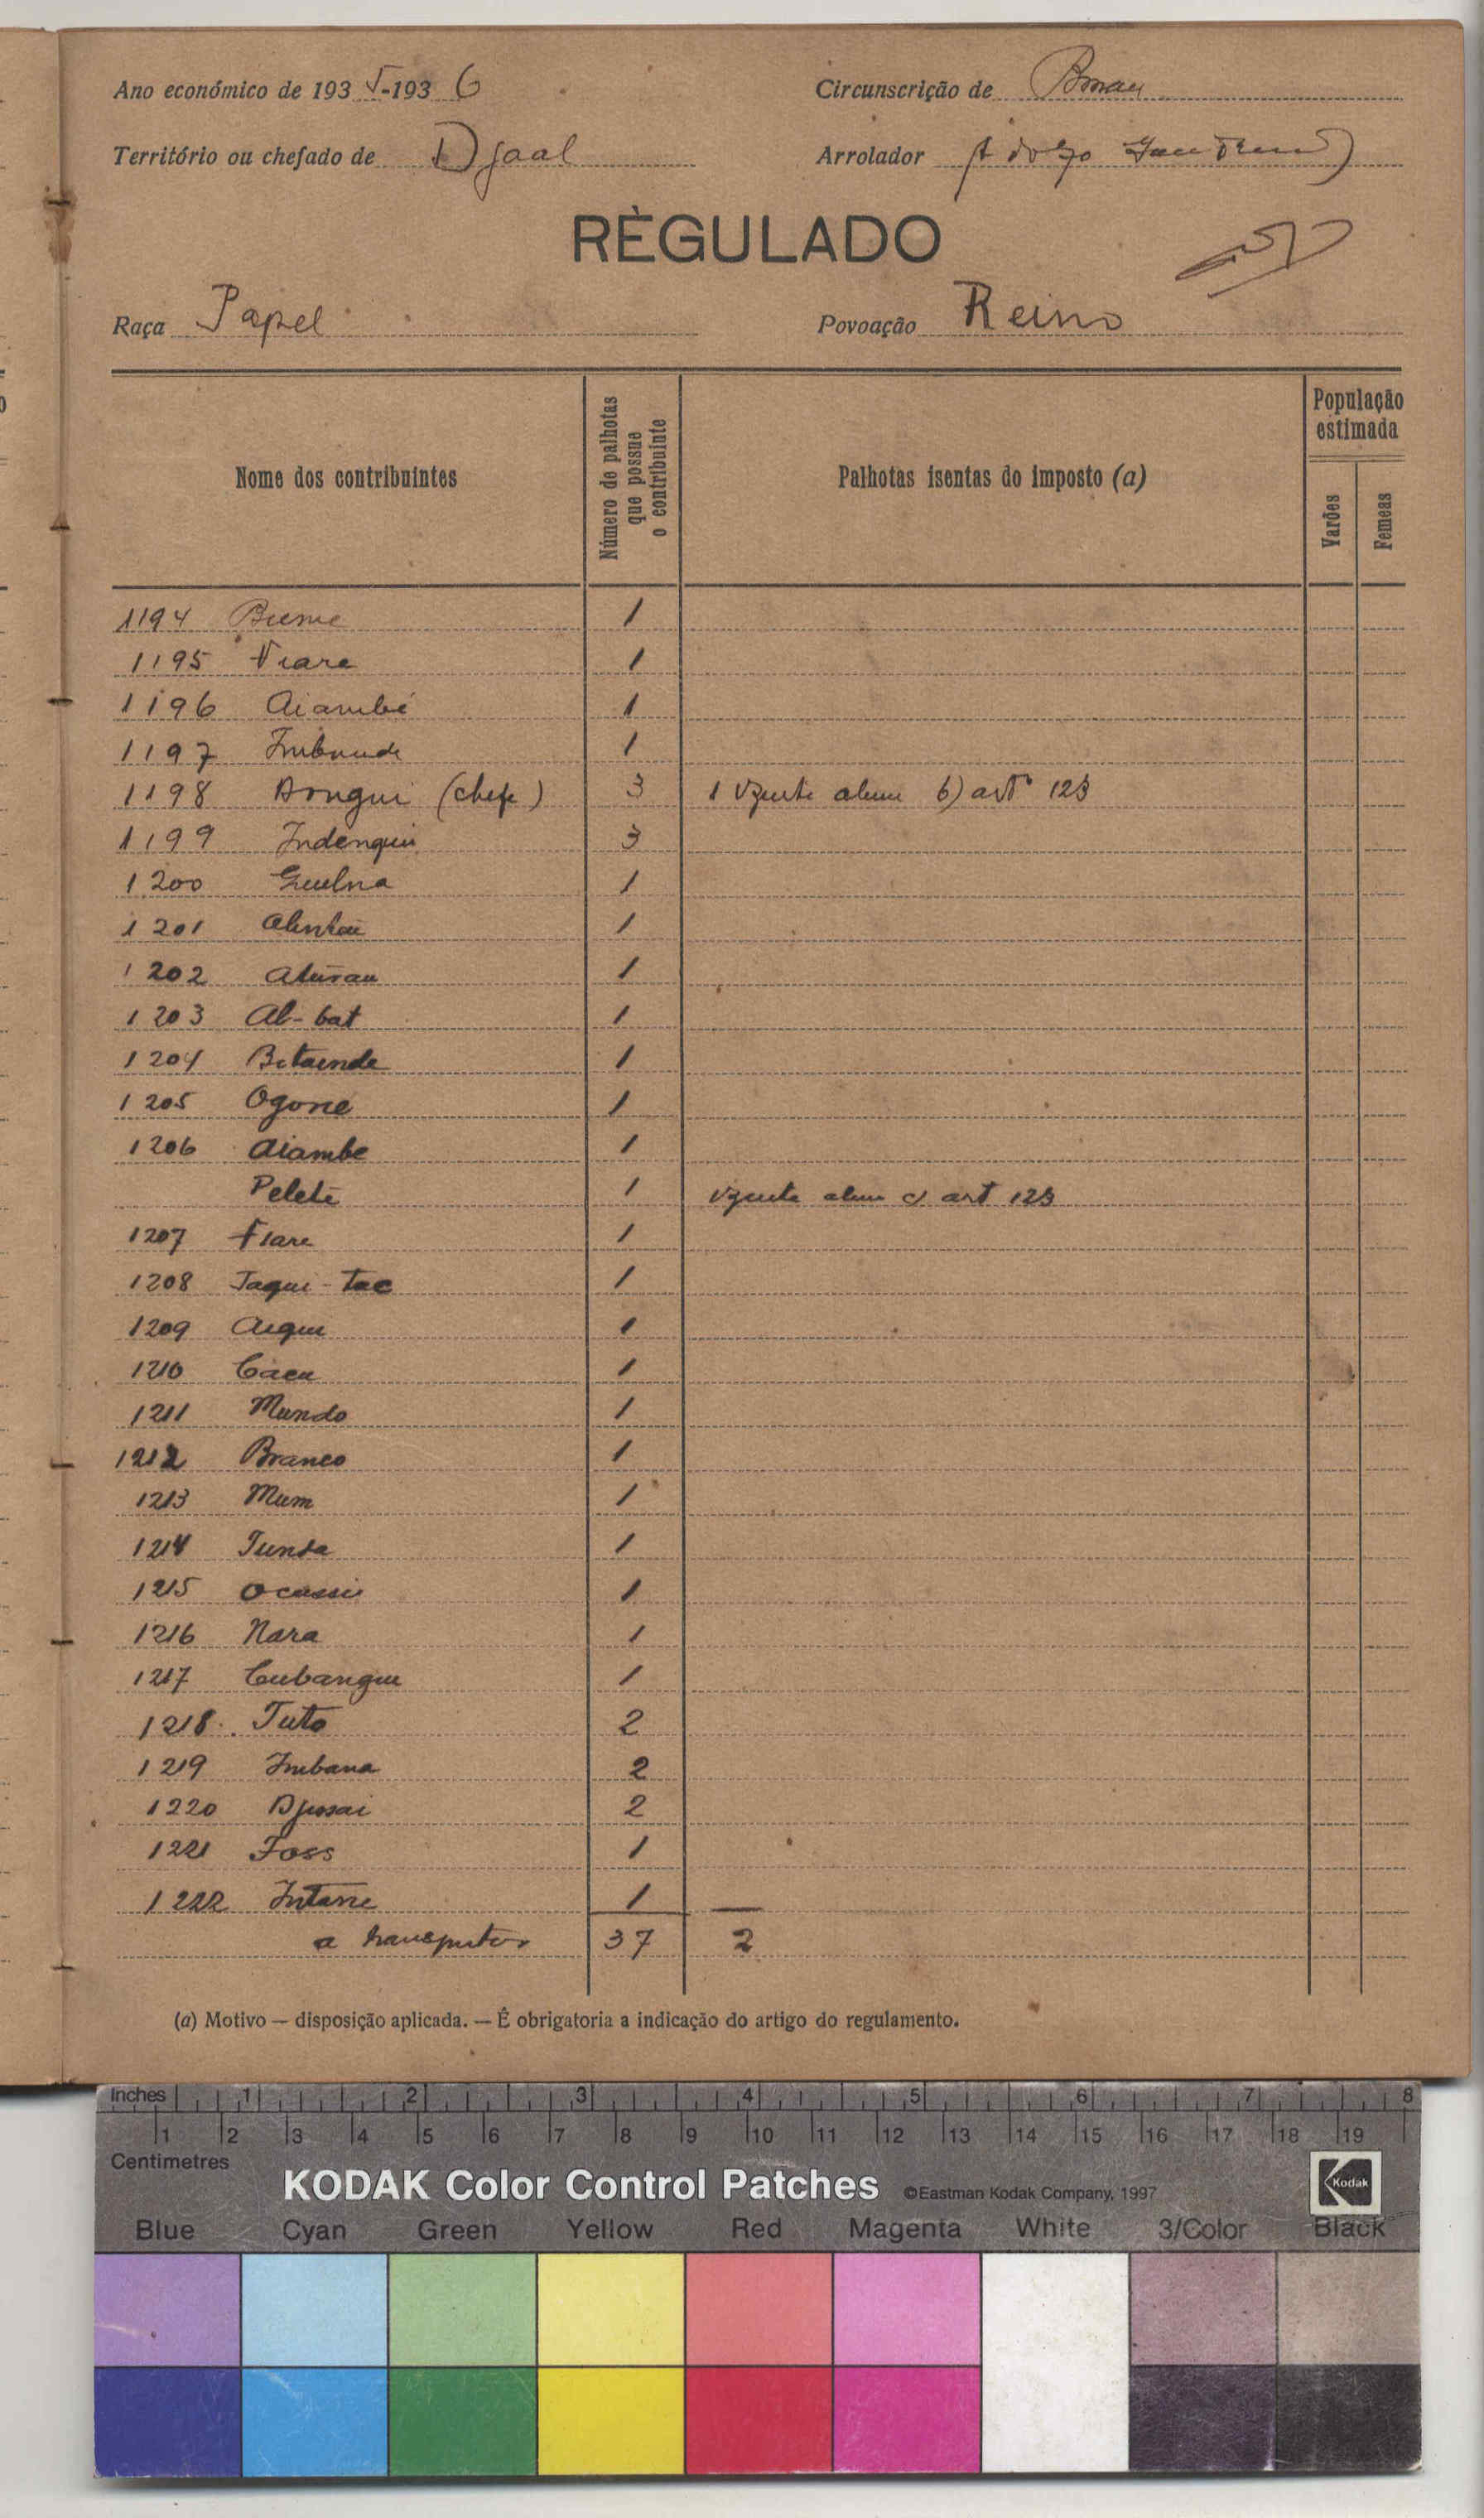 Ano económico de 1935-1936
Circunscrição de
Território ou chefado de Djaal
Arrolador
RÈGULADO
Raça Papel
Povoação Reino
Nome dos contribuintes
Número de palhotas que possue o contribuinte
Palhotas isentas do imposto (a)
População estimada
Varões
Femeas
1194 Bieme 1
1195 1
1196 Aiambé 1
1197 1
1198 Dongui (chefe) 3 1 b) artº 123
1199 Indengui 3
1200 1
1201 1
1202 1
1203 Al-bat 1
1204 Betaende 1
1205 Ogone 1
1206 Aiambe 1
Pelete 1 c) art 123
1207 1
1208 Jaqui-tac 1
1209 Aigui 1
1210 1
1211 Mundo 1
1212 Branco 1
1213 Mum 1
1214 1
1215 Ocassie 1
1216 Nara 1
1217 Cubangui 1
1218 Tuto 2
1219 Imbana 2
1220 2
1221 Foss 1
1222 Intane 1
a transportar 37 2
(a) Motivo — disposição aplicada. — É obrigatoria a indicação do artigo do regulamento.
Inches 1 2 3 4 5 6 7 8
1 2 3 4 5 6 7 8 9 10 11 12 13 14 15 16 17 18 19
Centimetres
KODAK Color Control Patches ©Eastman Kodak Company, 1997 Kodak
Blue Cyan Green Yellow Red Magenta White 3/Color Black